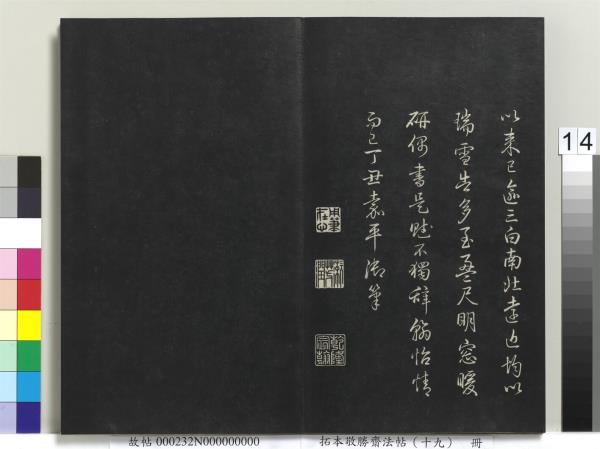 以來已逾三白南北遠近均以
瑞雪告多至盈尺明窓暖
研偶書是賦不獨辭翰怡情
而已丁丑嘉平御筆
乾隆
宸翰
14
故帖 000232N000000000
拓本敬勝齋法帖（十九） 冊